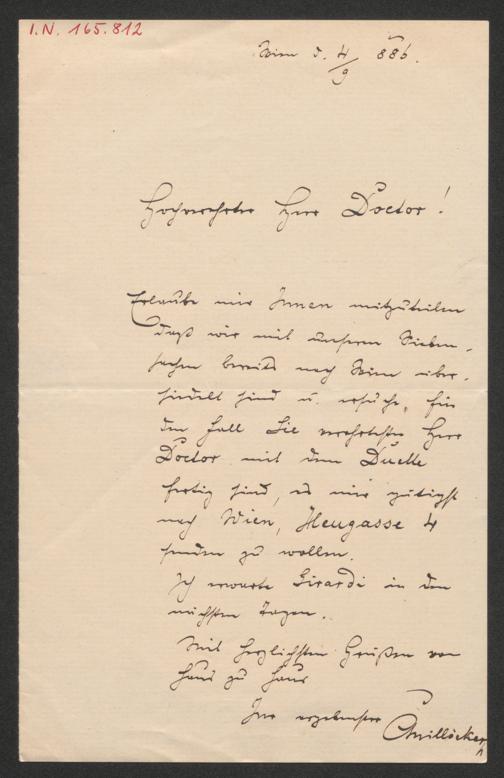 I.N. 165.812
Wien d. 4/9 886.
Hochverehrter Herr Doctor!
Erlaube mir Ihnen mitzutheilen
daß wir mit unseren Sieben-
sachen bereits nach Wien über-
siedelt sind u. ersuche, für
den Fall Sie verehrtester Herr
Doctor mit dem Duette
fertig sind, es mir gütigst
nach Wien, Heugasse 4
senden zu wollen.
Ich erwarte Girardi in den
nächsten Tagen.
Mit herzlichsten Grüßen von
Haus zu Haus
Ihr ergebenster CMillöcker